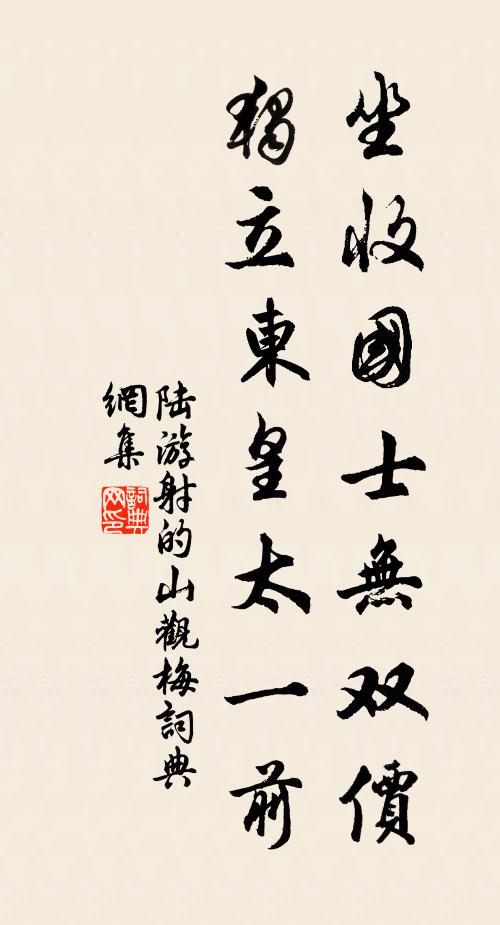 坐收國士無双價
獨立東皇太一前
陆游射的山觀梅詞典
網集
詞典
网印